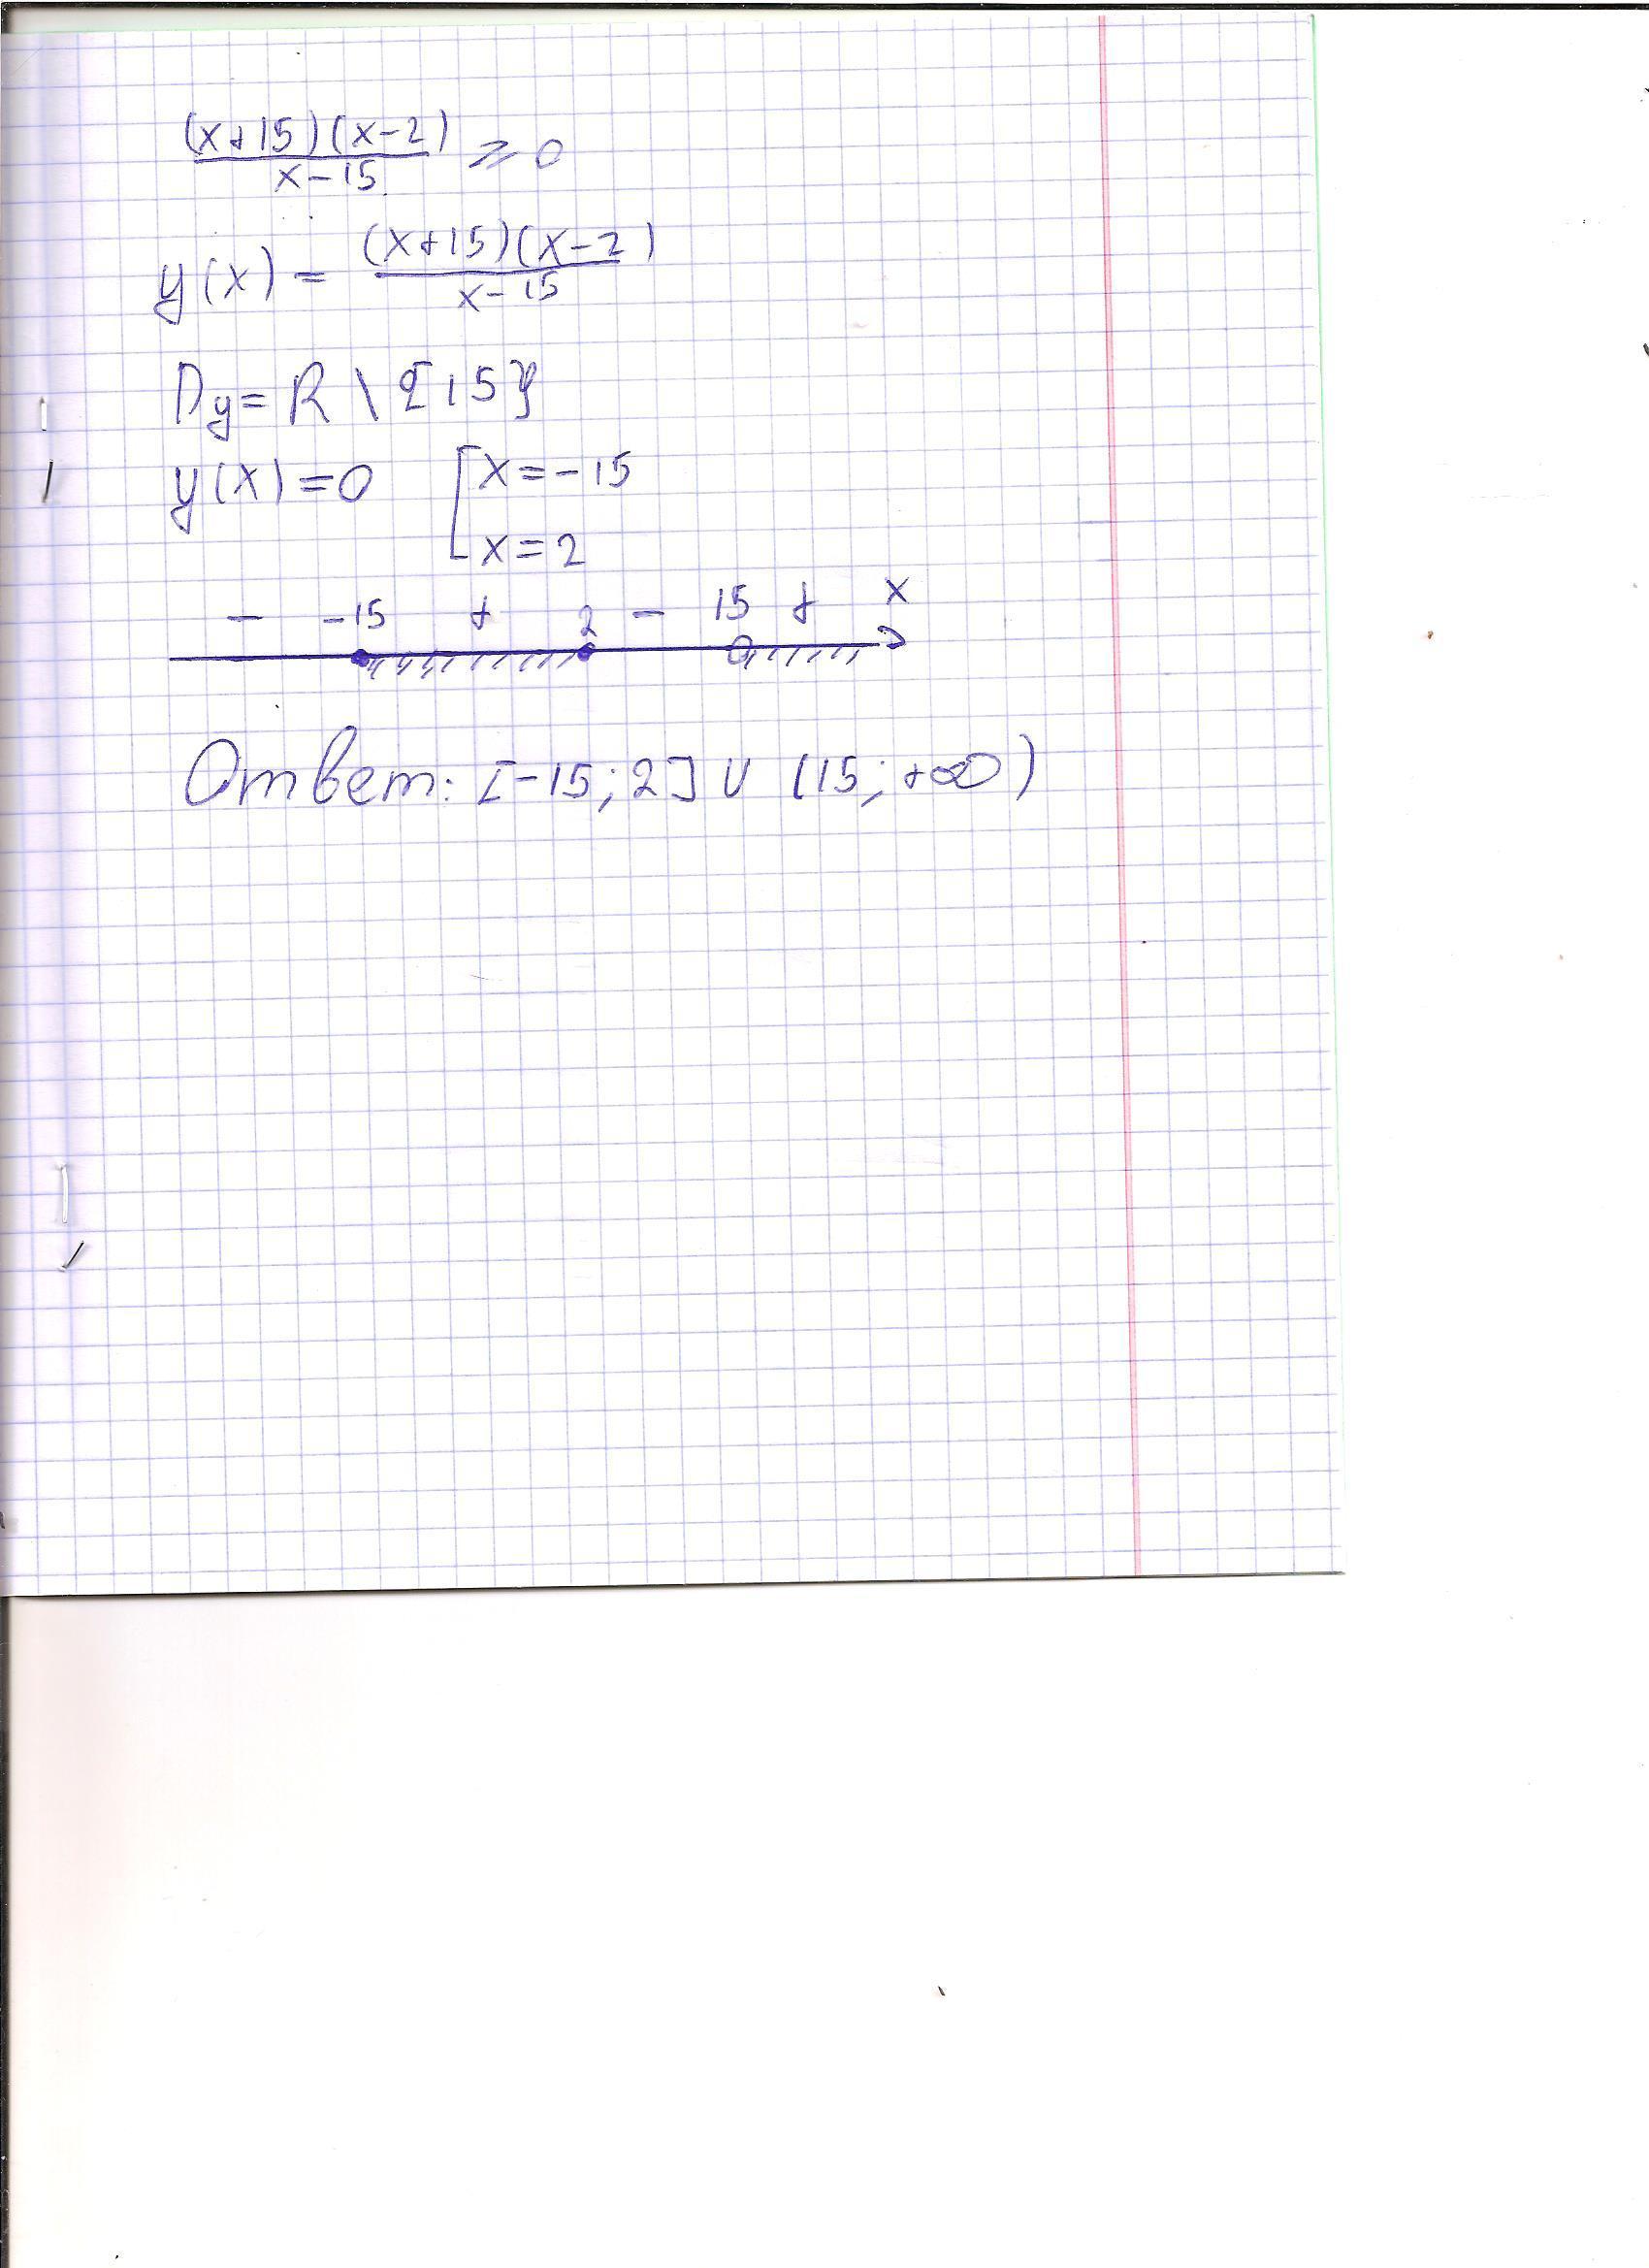 (x+15)(x-2)
x-15
≥ 0
y(x) = (x+15)(x-2)
x-15
Dy = R \ {15}
y(x)=0 [x=-15
x=2
- -15 + 2 - 15 + x
Ответ: [-15;2] ∪ (15;+∞)